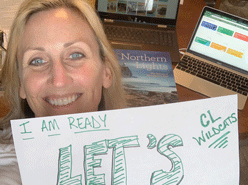 Northern
Lights
I AM READY
CL
WILDCATS
LET'S